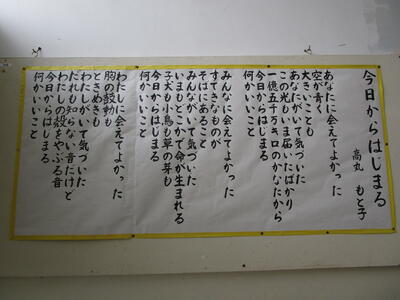 今日からはじまる
高丸 もと子
あなたに会えてよかった
空が青く
大きいことも
あなたがいて気づいた
この光もいま届いたばかり
一億五千万キロのかなたから
今日からはじまる
何かいいこと
みんなに会えてよかった
すてきなものが
そばにあること
みんながいて気づいた
いまもどこかで命が生まれる
子犬も小鳥も草の芽も
今日からはじまる
何かいいこと
わたしに会えてよかった
胸の鼓動も
ときめきも
わたしがいて気づいた
だれも知らない音だけど
わたしの殻をやぶる音
今日からはじまる
何かいいこと